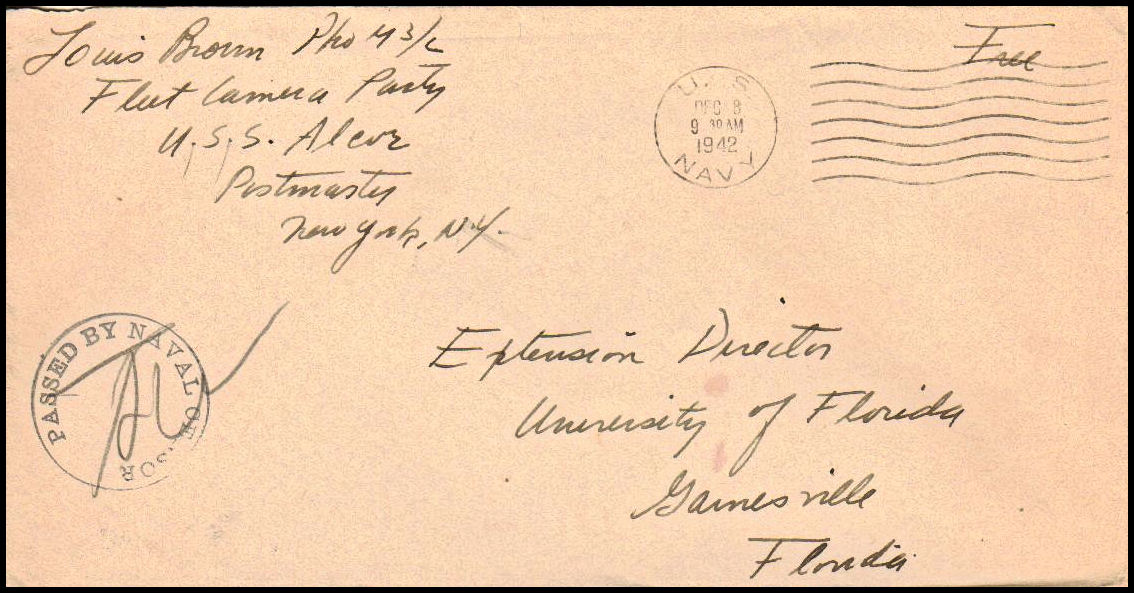 Louis Brown Pho M 3/c
Fleet Camera Party
U.S.S. Alcor
Postmaster
New York, N.Y.
Free
U. S.
DEC 8
9 30 AM
1942
NAVY
PASSED BY NAVAL CENSOR
Extension Director
University of Florida
Gainesville
Florida